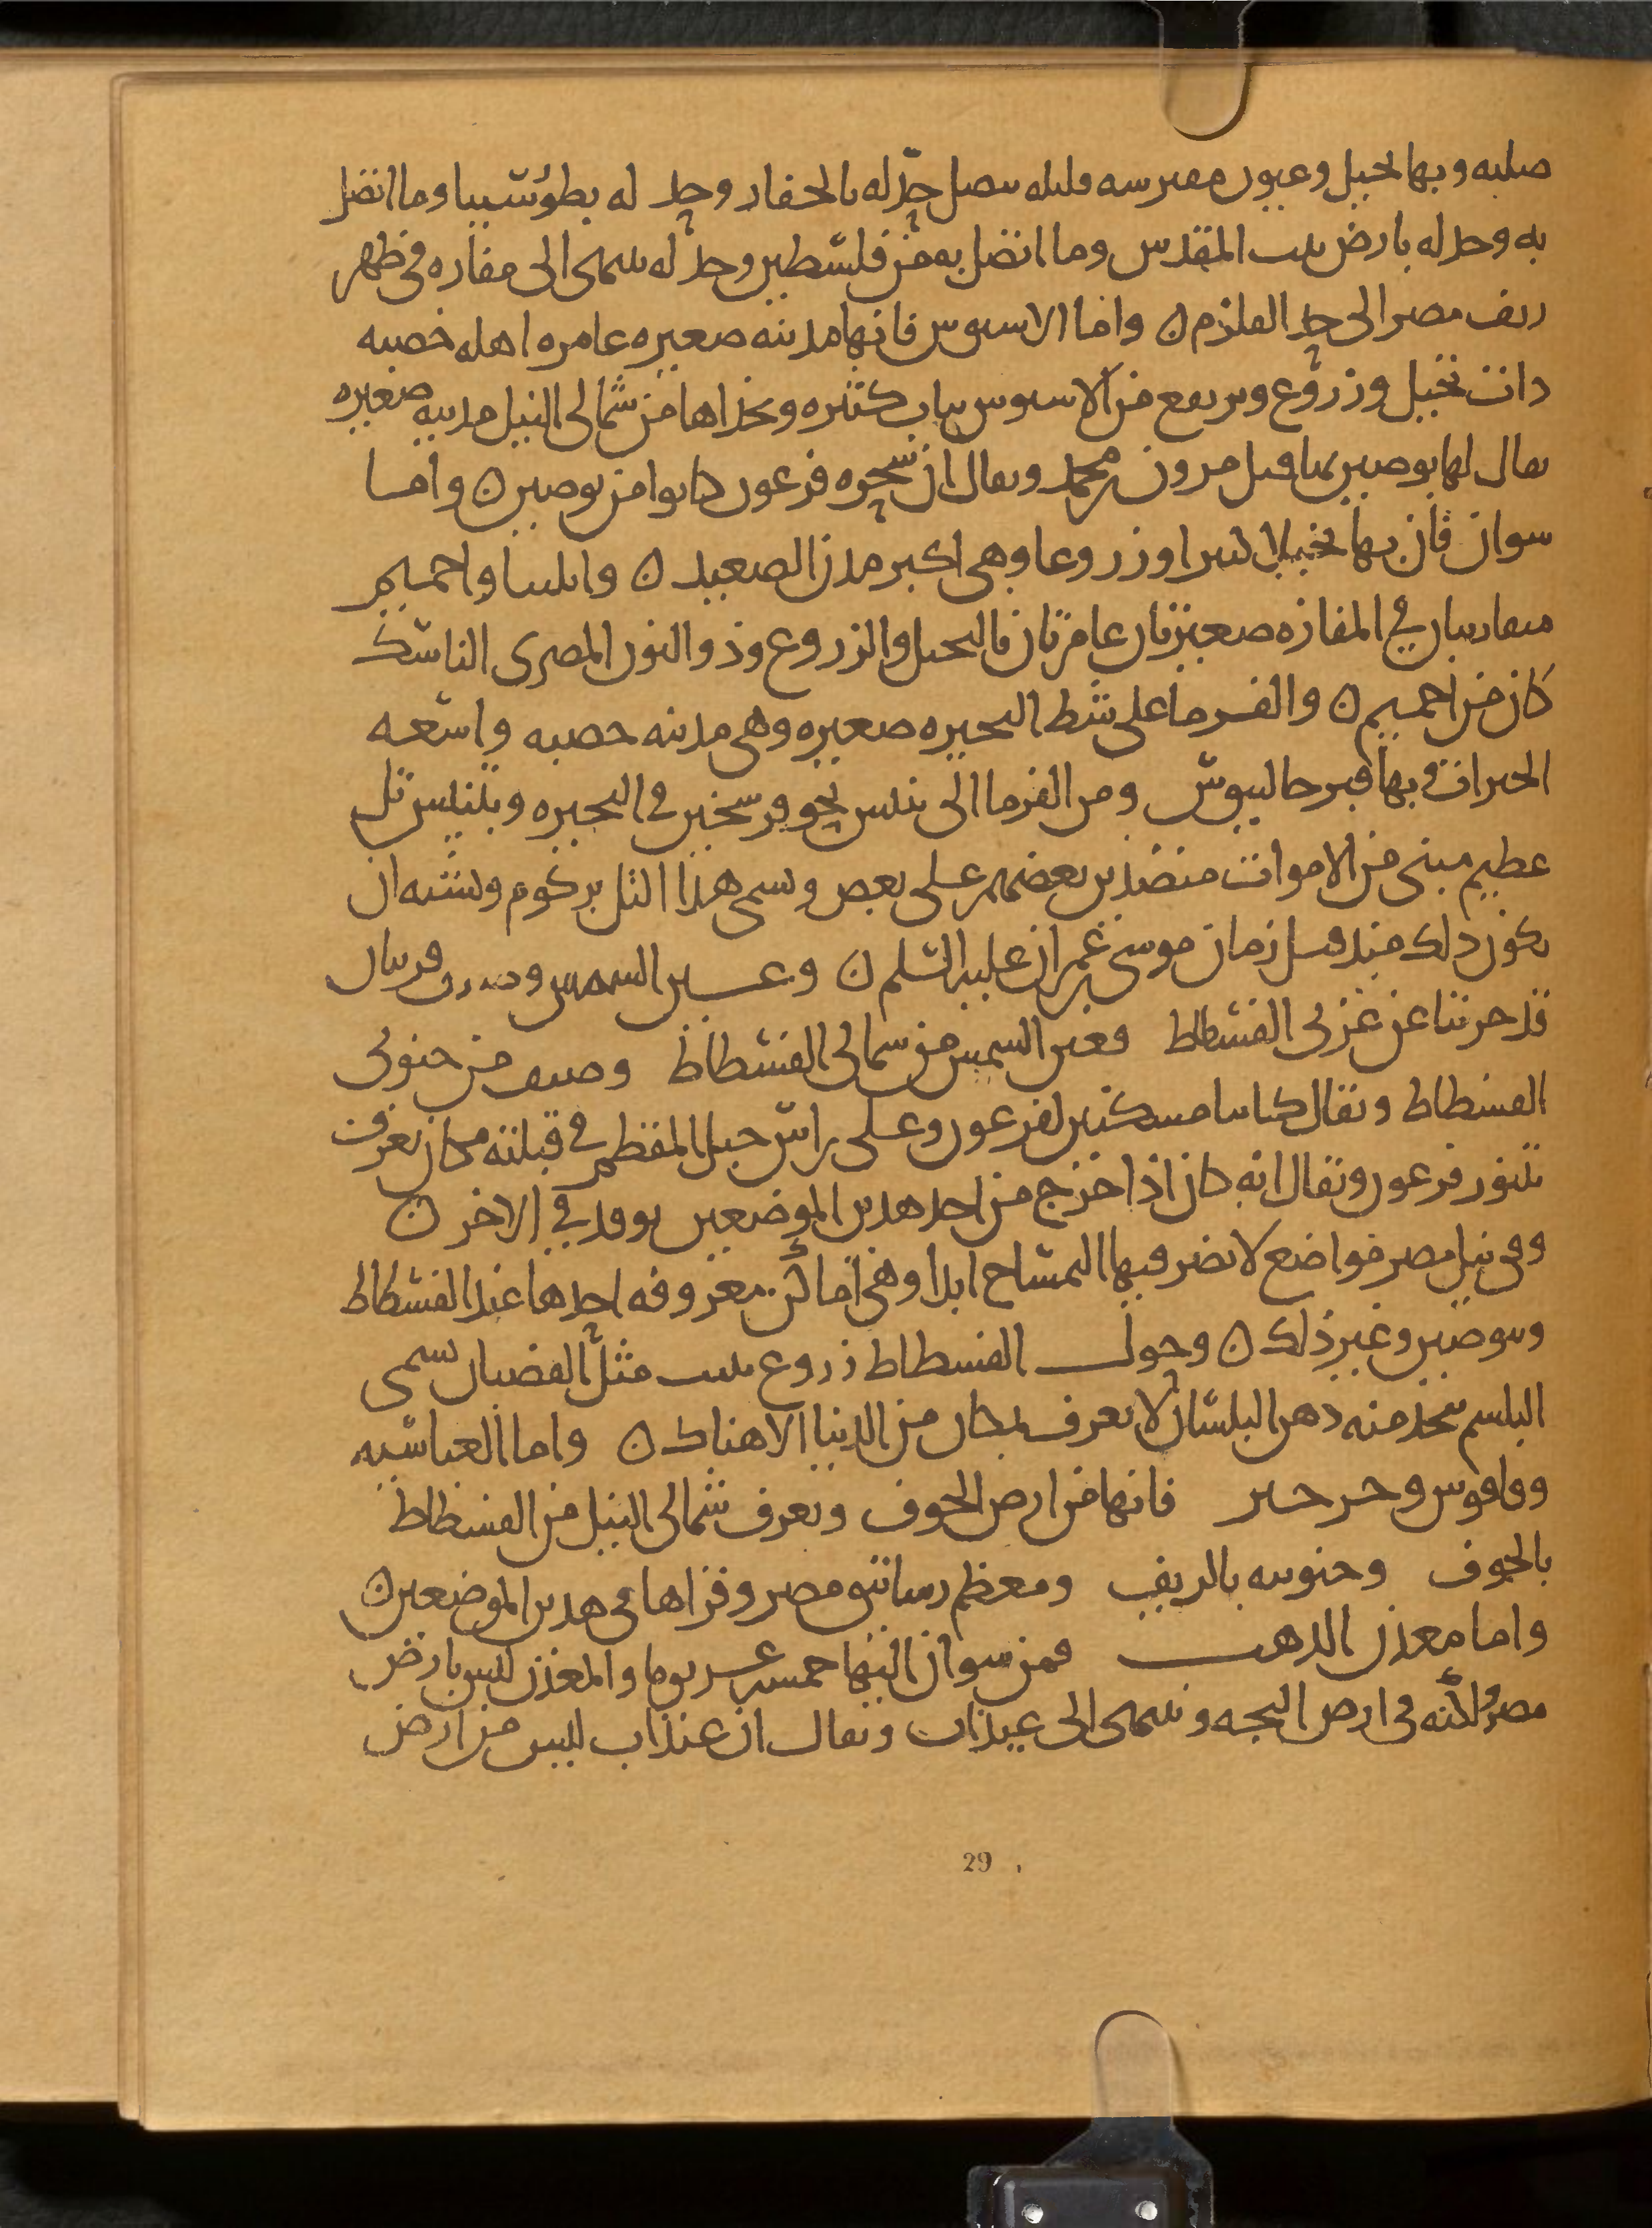 صلبه وبها نخيل وعيون مفترشه قليله يتصل حدّ له بالجفار وحد له بطور سينا وما اتصل
به وحد له بارض بيت المقدس وما اتصل به من فلسطين وحد له ينتهى الى مفازه فى ظهر
ريف مصر الى حد القلزم ن واما الاشموس فانها مدينه صغيره عامره اهله خصبه
ذات نخيل وزروع ويرتفع من الاشموس ثياب كثيره وبحذاها من شمالى النيل مدينه صغيره
يقال لها بوصير بها قتل مرون بن محمد ويقال ان سحره فرعون كانوا من بوصير ن واما
سوان فان بها نخيلا كثيرا وزروعا وهى اكبر مدن الصعيد ن واسنا واخميم
متقاربتان فى المفازه صغيرتان عامرتان بالنخيل والزروع وذو النون المصرى الناسك
كان من اخميم ن والفرما على شط البحيره صغيره وهى مدينه خصبه واسعه
الخيرات وبها قبر جالينوس ومن الفرما الى تنيس نحو فرسخين فى البحيره وبتنيس تل
عظيم مبنى من الاموات منضدين بعضهم على بعض ويسمى هذا التل بركوم ويشبه ان
يكون ذلك منذ قبل زمان موسى بن عمران عليه السلم ن وعين الشمس ومنف قريتان
قد خربتا عن غربى الفسطاط فعين الشمس من شمالى الفسطاط ومنف من جنوبى
الفسطاط ويقال كانتا مسكنين لفرعون وعلى راس جبل المقطم فى قبلته مكان يعرف
بتنور فرعون ويقال انه كان اذا خرج من احد هذين الموضعين يوقد فى الاخر ن
وفى نيل مصر مواضع لا يضر فيها التمساح ابدا وهى اماكن معروفه احدها عند الفسطاط
وبوصير وغير ذلك ن وحول الفسطاط زروع ينبت مثل القضبان يسمى
البلسم يتخذ منه دهن البلسان لا يعرف بمكان من الدنيا الا هناك ن واما العباسيه
وفاقوس وجرجير فانها من ارض الحوف ويعرف شمالى النيل من الفسطاط
بالحوف وجنوبيه بالريف ومعظم رساتيق مصر وقراها فى هذين الموضعين ن
واما معدن الذهب فمن سوان اليها خمسه عشر يوما والمعدن ليس بارض
مصر ولكنه فى ارض البجه وينتهى الى عيذاب ويقال ان عيذاب ليس من ارض
29